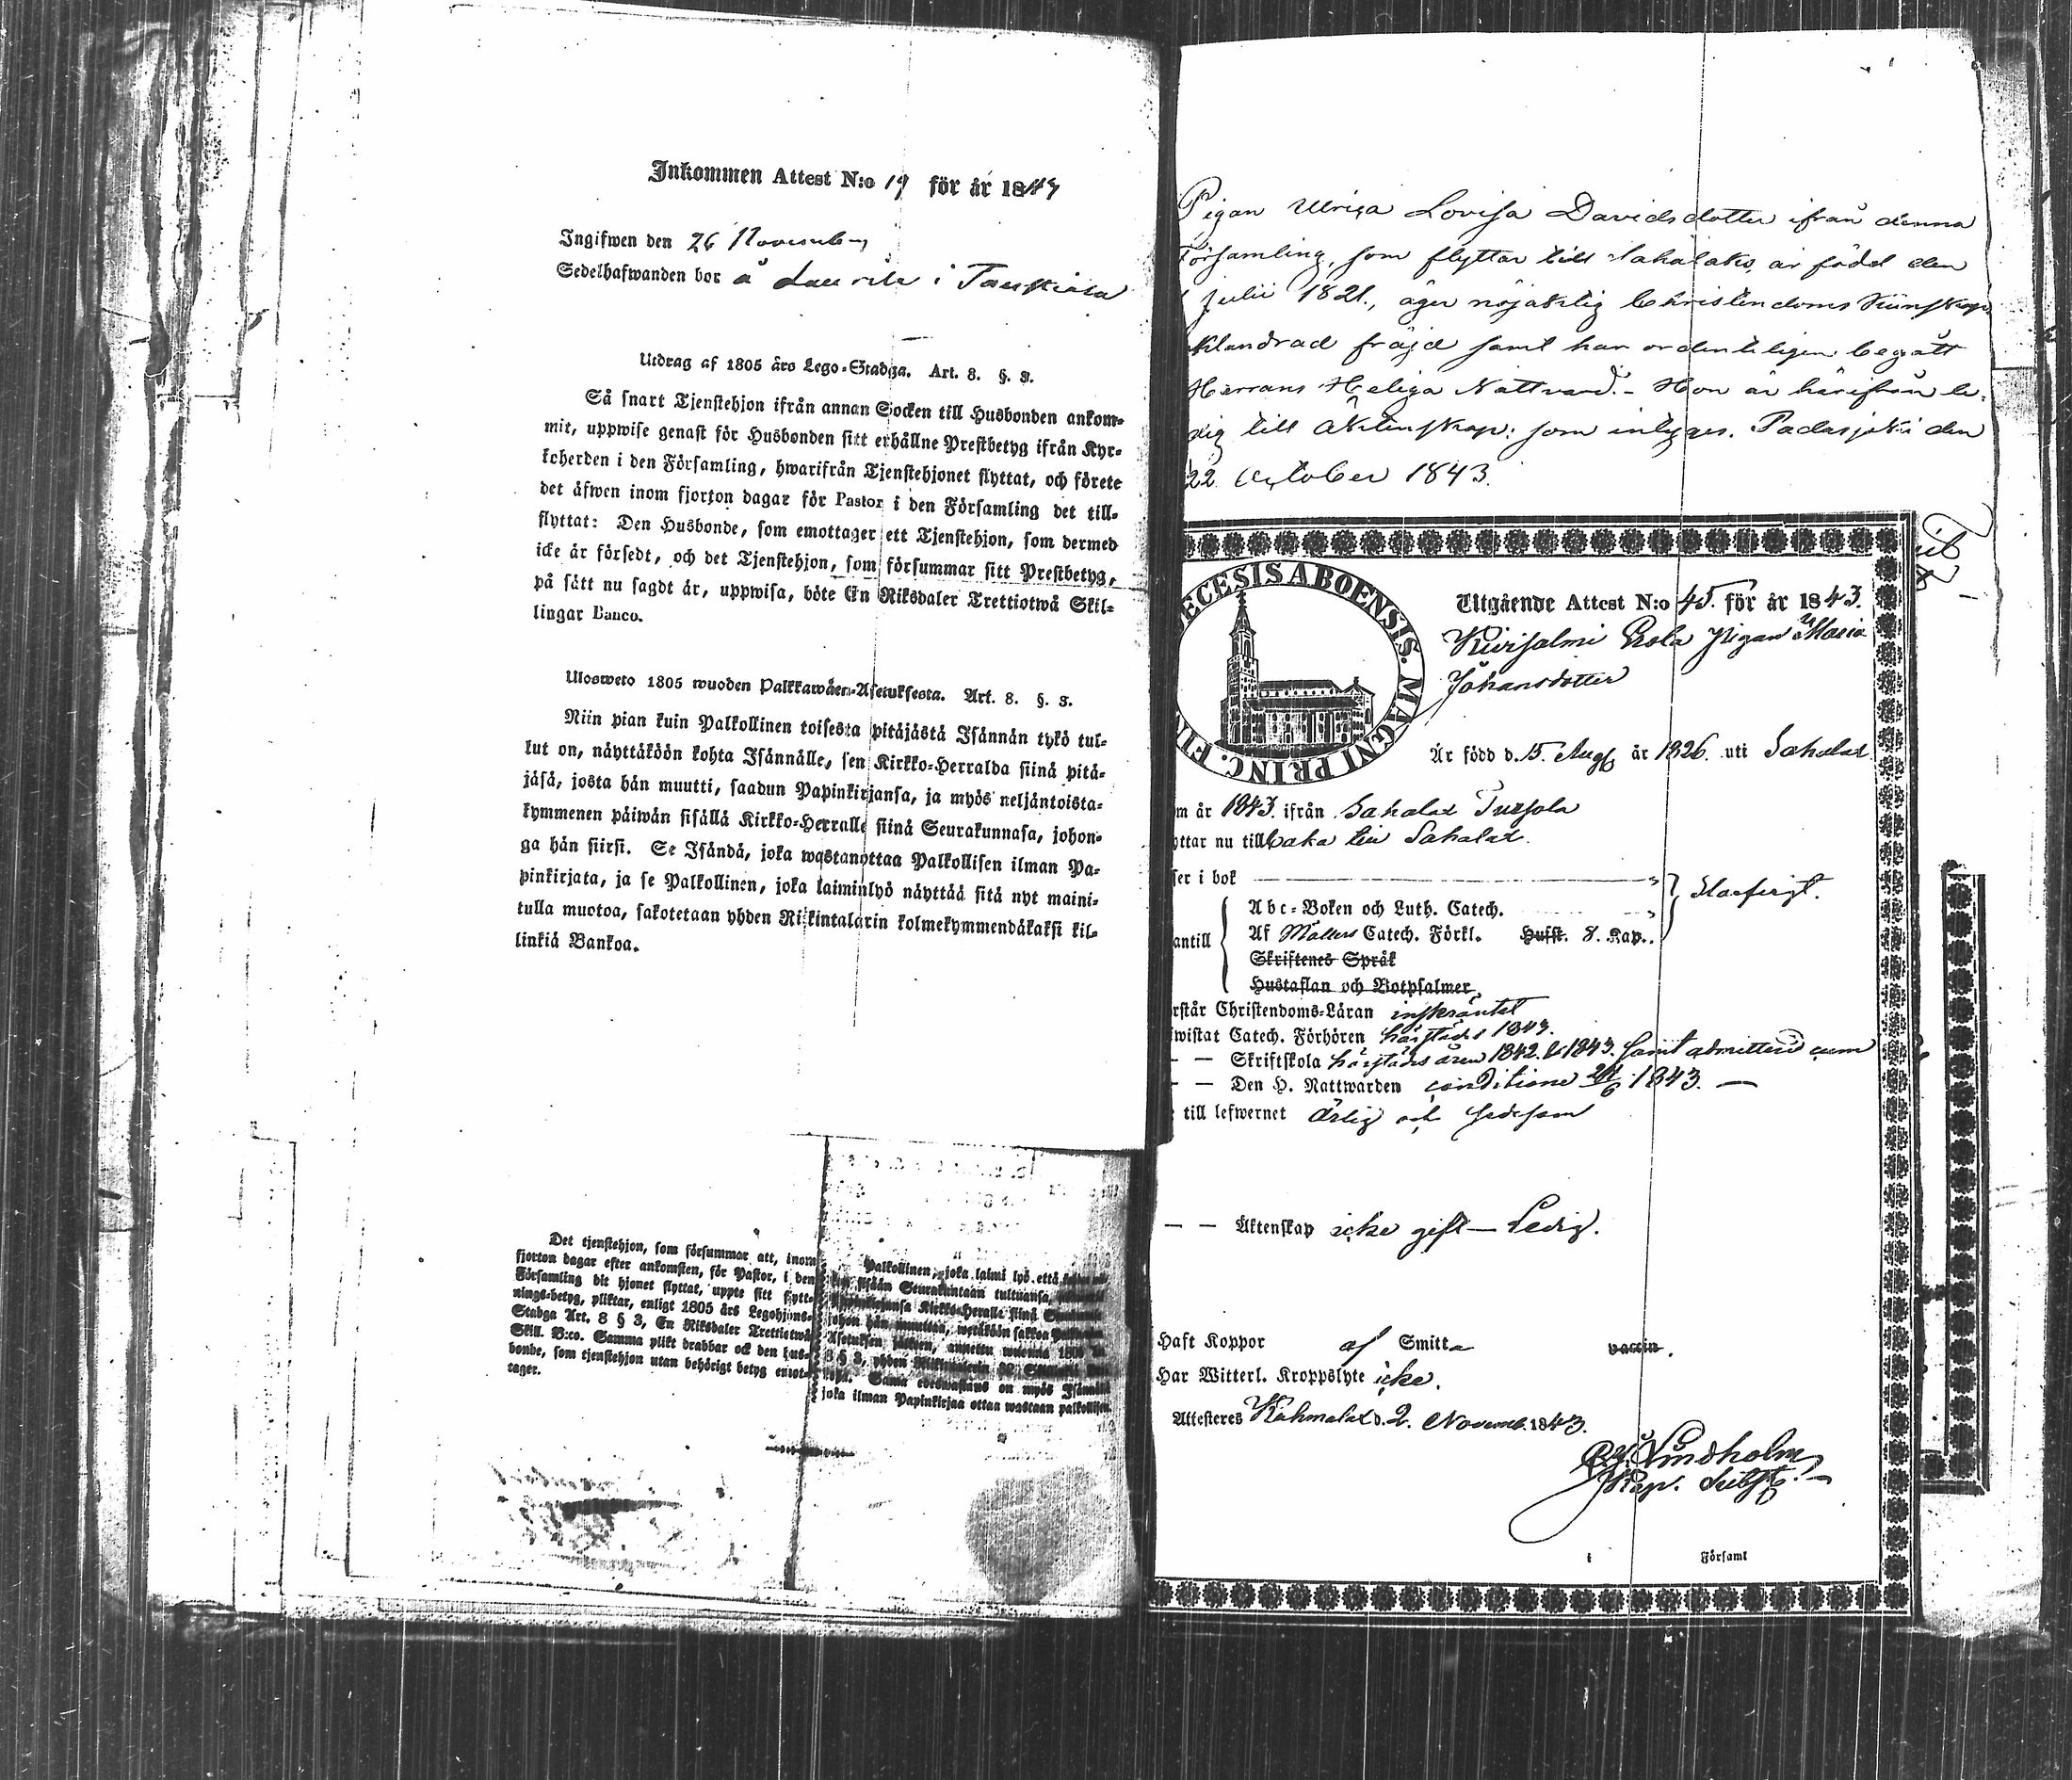 Inkommen Attest N:o 19 för år 1843
Ingifwen den 26 November
Sedelhafwanden bor å Laurila i Tauskiala
Utdrag af 1805 års Lego-Stadga. Art. 8. §. 3.
Så snart Tjenstehjon ifrån annan Socken till Husbonden ankom-
mit, uppwise genast för Husbonden sitt erhållne Prestbetyg ifrån Kyr-
koherden i den Församling, hwarifrån Tjenstehjonet flyttat, och förete
det äfwen inom fjorton dagar för Pastor i den Församling det till-
flyttat: Den Husbonde, som emottager ett Tjenstehjon, som dermed
icke är försedt, och det Tjenstehjon, som försummar sitt Prestbetyg,
på sätt nu sagdt är, uppwisa, böte En Riksdaler Trettiotwå Skil-
lingar Banco.
Ulosweto 1805 wuoden Palkkawäen-Asetuksesta. Art. 8. §. 3.
Niin pian kuin Palkollinen toisesta pitäjästä Isännän tykö tul-
lut on, näyttäköön kohta Isännälle, sen Kirkko-Herralda siinä pitä-
jäsä, josta hän muutti, saadun Papinkirjansa, ja myös neljäntoista-
kymmenen päiwän sisällä Kirkko-Herralle siinä Seurakunnasa, johon-
ga hän siirsi. Se Isändä, joka wastanottaa Palkollisen ilman Pa-
pinkirjata, ja se Palkollinen, joka laiminlyö näyttää sitä nyt maini-
tulla muotoa, sakotetaan yhden Riikintalarin kolmekymmendäkaksi kil-
linkiä Bankoa.
Det tjenstehjon, som försummar att, inom
fjorton dagar efter ankomsten, för Pastor, i den
Församling dit hjonet flyttat, uppte sitt flytt-
nings-betyg, pliktar, enligt 1805 års Legohjons-
Stadga Art. 8 § 3, En Riksdaler Trettiotwå
Skill. B:co. Samma plikt drabbar ock den hus-
bonde, som tjenstehjon utan behörigt betyg emot-
tager.
Palkollinen, joka laimi lyö, että
sisään Seurakuntaan tultuansa,
Kirkko-Heralle siinä
johon hän muuttaa, wetäköön sakkoa
Asetuksen jälkeen, annettu wuonna 1805
8 § 3, yhden
Sama edeswastaus on myös Isännällä
joka ilman Papinkirjaa ottaa wastaan palkollisen.
Pigan Ulrica Lovisa Davidsdotter ifrån denna
Församling, som flyttar till Sahalaks, är född den
Julii 1821, äger nöjaktig Christendoms Kunskap,
oklandrad fräjd samt har ordenteligen begått
Herrans Heliga Nattvard. - Hon är härifrån le-
dig till Äktenskap: som intygas. Padasjoki den
22 October 1843.
ECESIS ABOENSIS. MAGNI PRINC. FIN
Utgående Attest N:o 45. för år 1843.
Kivisalmi Erola Pigan Maria
Johansdotter
Är född d. 15. Aug. år 1826. uti Sahalax
m år 1843. ifrån Sahalax Tursola
yttar nu tillbaka till Sahalax.
ser i bok
Abc-Boken och Luth. Catech.
antill Af Möllers Catech. Förkl. Husst. 8. Kap.
Skriftenes Språk
Hustaflan och Botpsalmer
rstår Christendoms-Läran inskränkt
iwistat Catech. Förhören härstädes 1843.
— — Skriftskola härstädes åren 1842 & 1843. samt admitterad cum
— — Den H. Nattwarden conditione 24/6 1843. —
till lefwernet ärlig och sedesam
— — Äktenskap icke gift — Ledig.
Haft Koppor af Smitta vaccin.
Har Witterl. Kroppslyte icke.
Attesteres Kuhmalax d. 2. Novemb. 1843.
Lindholm
Kap. Subst.
i Församl